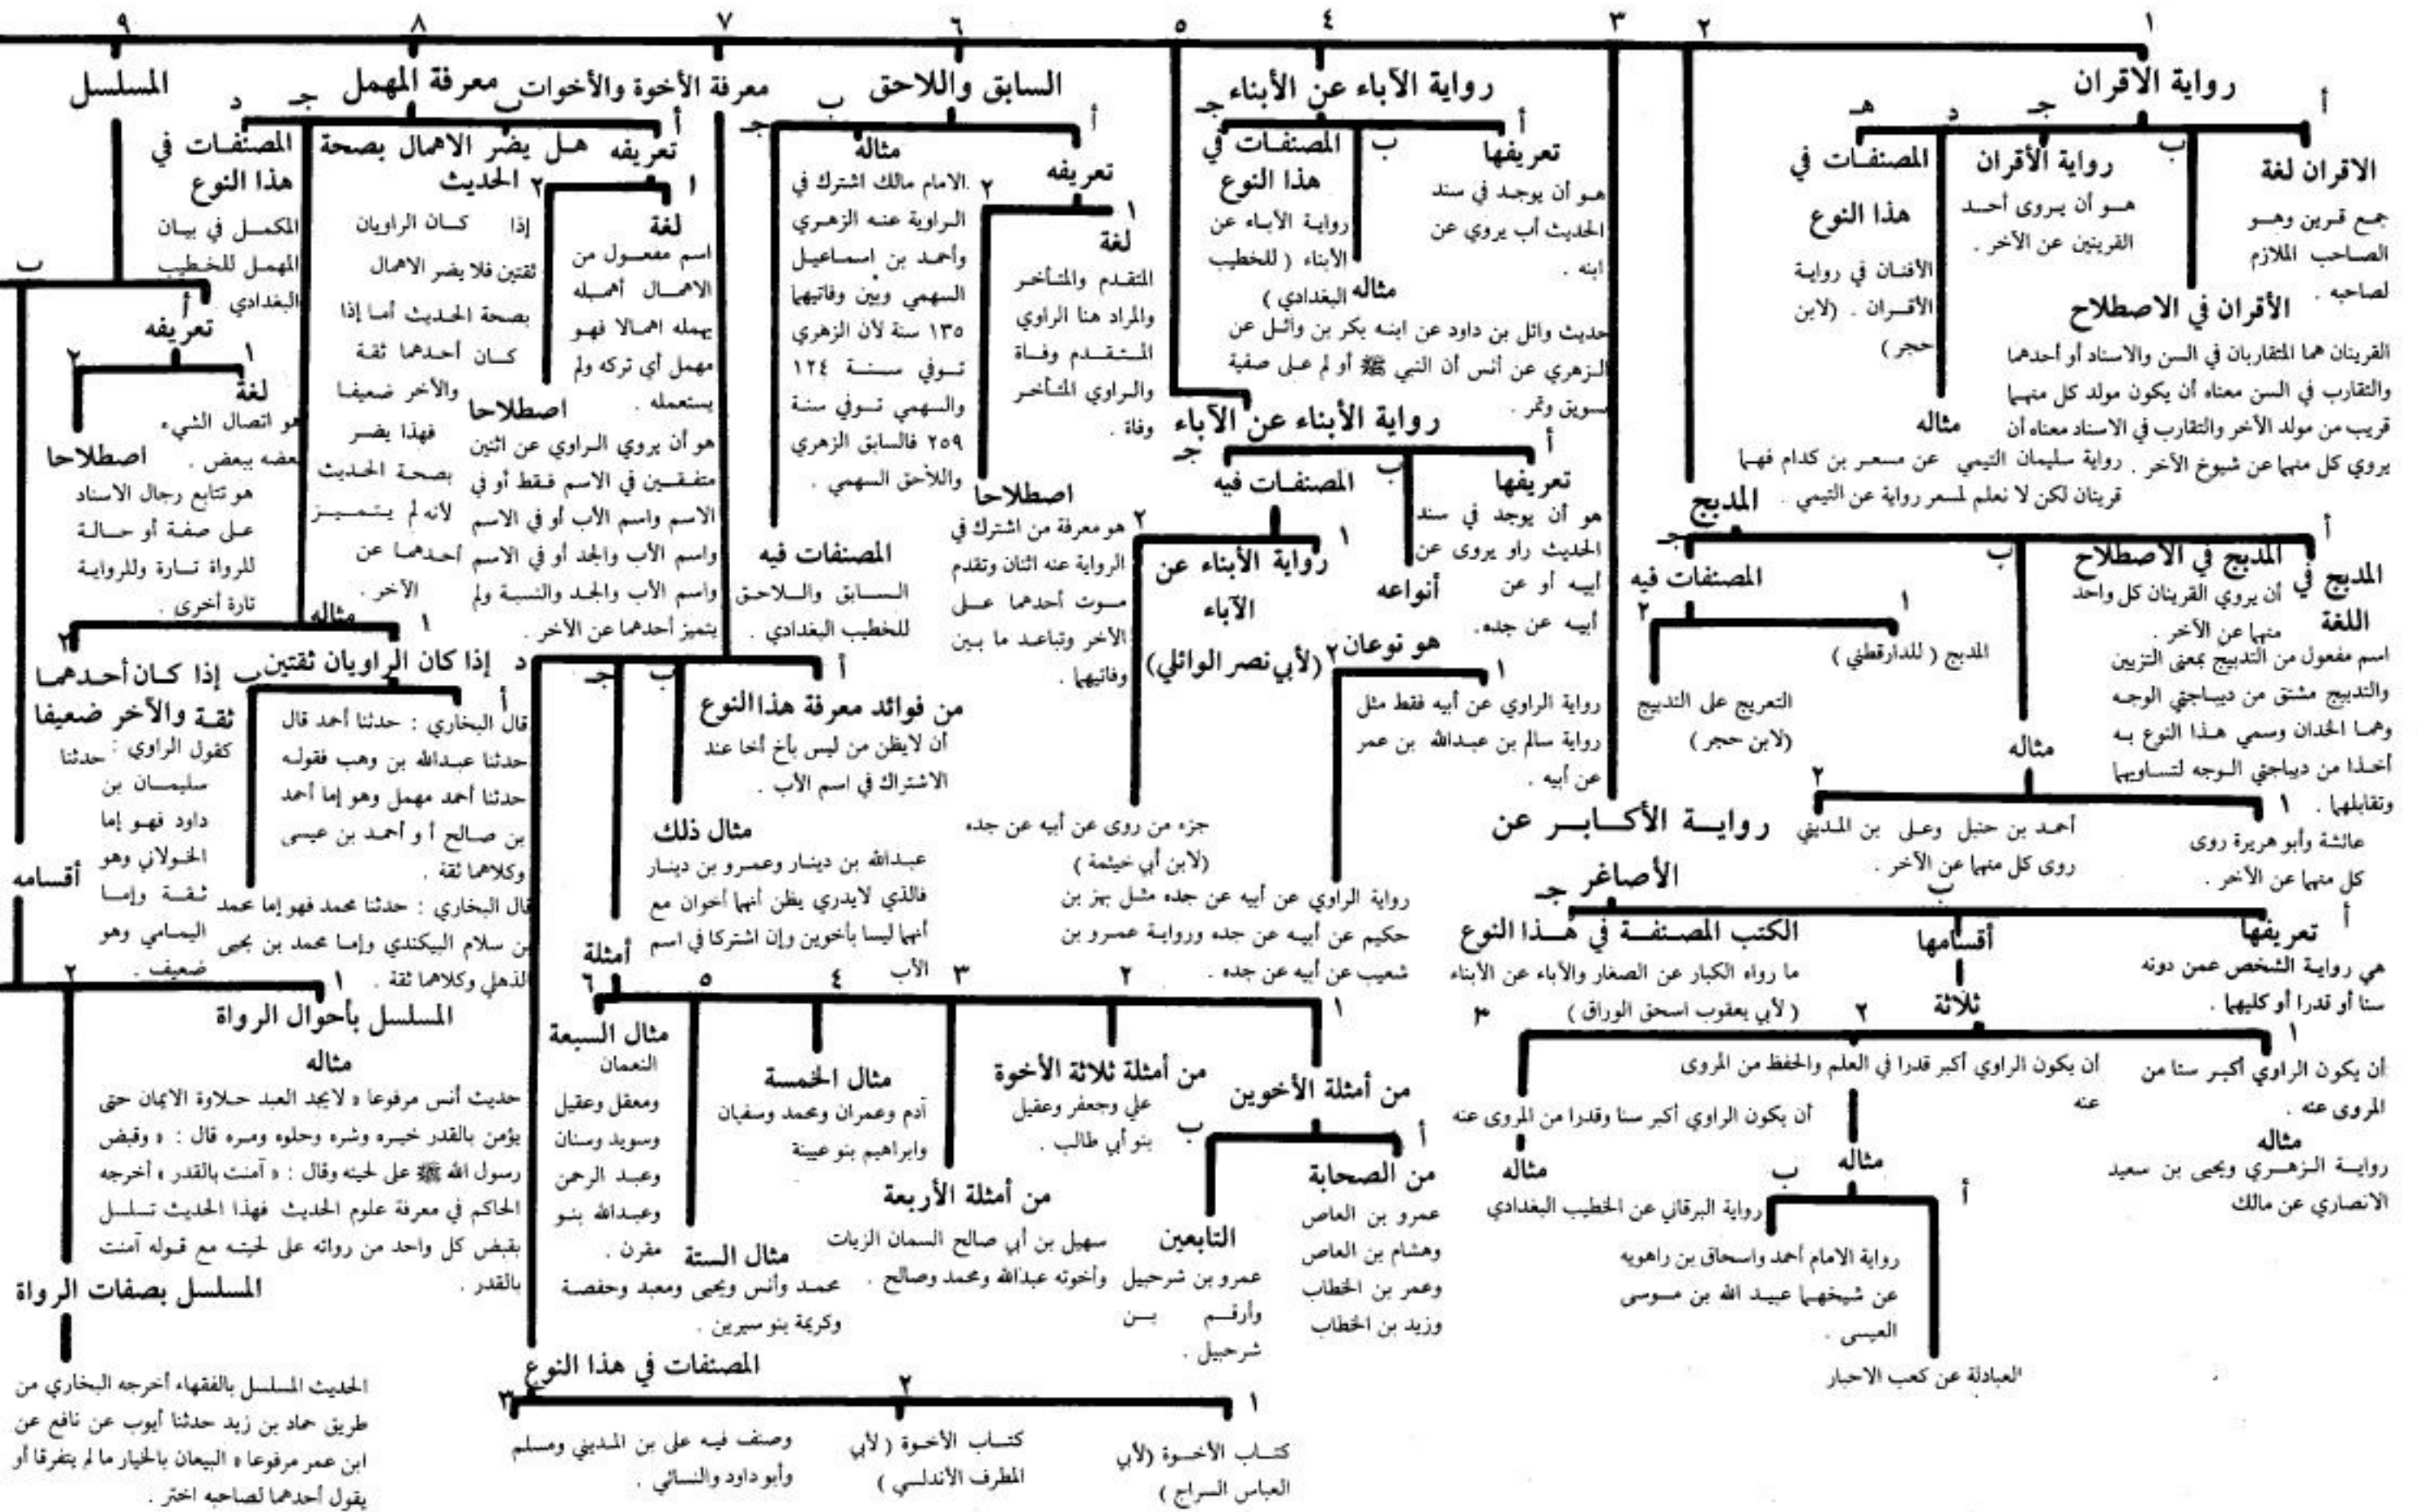 ١
٢
٣
٤
٥
٦
٧
٨
٩
رواية الاقران
أ
ب
جـ
د
هـ
الاقران لغة
جمع قرين وهو
الصاحب الملازم
لصاحبه .
الأقران في الاصطلاح
القرينان هما المتقاربان في السن والاسناد أو أحدهما
والتقارب في السن معناه أن يكون مولد كل منهما
قريب من مولد الآخر والتقارب في الاسناد معناه أن
يروي كل منهما عن شيوخ الآخر .
رواية الأقران
هو أن يروى أحد
القرينين عن الآخر .
مثاله
رواية سليمان التيمي عن مسعر بن كدام فهما
قرينان لكن لا نعلم لمسعر رواية عن التيمي .
المصنفات في
هذا النوع
الأفنان في رواية
الأقران . (لابن
حجر )
المدبج
أ
ب
جـ
المدبج في
اللغة
اسم مفعول من التدبيج بمعنى التزيين
والتدبيج مشتق من ديباجتي الوجه
وهما الخدان وسمي هذا النوع به
أخذا من ديباجتي الوجه لتساويهما
وتقابلهما .
المدبج في الاصطلاح
أن يروي القرينان كل واحد
منهما عن الآخر .
مثاله
١
عائشة وأبو هريرة روى
كل منهما عن الآخر .
٢
أحمد بن حنبل وعلى بن المديني
روى كل منهما عن الآخر .
المصنفات فيه
١
المدبج ( للدارقطني )
٢
التعريج على التدبيج
(لابن حجر )
رواية الأكابر عن
الأصاغر
أ
ب
جـ
تعريفها
هي رواية الشخص عمن دونه
سنا أو قدرا أو كليهما .
أقسامها
ثلاثة
١
أن يكون الراوي أكبر سنا من
المروى عنه .
مثاله
رواية الزهري ويحيى بن سعيد
الانصاري عن مالك
٢
أن يكون الراوي أكبر قدرا في العلم والحفظ من المروى
عنه
مثاله
أ
العبادلة عن كعب الاحبار
ب
رواية الامام أحمد واسحاق بن راهويه
عن شيخهما عبيد الله بن موسى
العيسى .
٣
أن يكون الراوي أكبر سنا وقدرا من المروى عنه
مثاله
رواية البرقاني عن الخطيب البغدادي
الكتب المصنفة في هذا النوع
ما رواه الكبار عن الصغار والآباء عن الأبناء
( لأبي يعقوب اسحق الوراق )
رواية الآباء عن الأبناء
أ
ب
جـ
تعريفها
هو أن يوجد في سند
الحديث أب يروي عن
ابنه .
مثاله
حديث وائل بن داود عن ابنه بكر بن وائل عن
الزهري عن أنس أن النبي ﷺ أو لم على صفية
سويق وتمر .
المصنفات في
هذا النوع
رواية الآباء عن
الأبناء ( للخطيب
البغدادي )
رواية الأبناء عن الآباء
أ
ب
جـ
تعريفها
هو أن يوجد في سند
الحديث راو يروى عن
أبيه أو عن
أبيه عن جده.
أنواعه
هو نوعان
١
رواية الراوي عن أبيه فقط مثل
رواية سالم بن عبدالله بن عمر
عن أبيه .
٢
رواية الراوي عن أبيه عن جده مثل بهز بن
حكيم عن أبيه عن جده ورواية عمرو بن
شعيب عن أبيه عن جده .
المصنفات فيه
١
رواية الأبناء عن
الآباء
(لأبي نصر الوائلي)
٢
جزء من روى عن أبيه عن جده
(لابن أبي خيثمة )
السابق واللاحق
أ
ب
جـ
تعريفه
١
لغة
المتقدم والمتأخر
والمراد هنا الراوي
المتقدم وفاة
والراوي المتأخر
وفاة .
٢
اصطلاحا
هو معرفة من اشترك في
الرواية عنه اثنان وتقدم
موت أحدهما على
الآخر وتباعد ما بين
وفاتيهما .
مثاله
الامام مالك اشترك في
الراوية عنه الزهري
وأحمد بن اسماعيل
السهمي وبين وفاتيهما
١٣٥ سنة لأن الزهري
توفي سنة ١٢٤
والسهمي توفي سنة
٢٥٩ فالسابق الزهري
واللاحق السهمي .
المصنفات فيه
السابق واللاحق
للخطيب البغدادي .
معرفة الأخوة والأخوات
أ
ب
جـ
د
من فوائد معرفة هذا النوع
أن لايظن من ليس بأخ أخا عند
الاشتراك في اسم الأب .
مثال ذلك
عبدالله بن دينار وعمرو بن دينار
فالذي لايدري يظن أنهما أخوان مع
أنهما ليسا بأخوين وإن اشتركا في اسم
الأب
أمثلة
١
من أمثلة الأخوين
أ
من الصحابة
عمرو بن العاص
وهشام بن العاص
وعمر بن الخطاب
وزيد بن الخطاب
ب
التابعين
عمرو بن شرحبيل
وأرقم بن
شرحبيل .
٢
من أمثلة ثلاثة الأخوة
علي وجعفر وعقيل
بنو أبي طالب .
٣
من أمثلة الأربعة
سهيل بن أبي صالح السمان الزيات
وأخوته عبدالله ومحمد وصالح .
٤
مثال الخمسة
آدم وعمران ومحمد وسفيان
وابراهيم بنو عيينة
٥
مثال الستة
محمد وأنس ويحيى ومعبد وحفصة
وكريمة بنو سيرين .
٦
مثال السبعة
النعمان
ومعقل وعقيل
وسويد وسنان
وعبد الرحمن
وعبدالله بنو
مقرن .
المصنفات في هذا النوع
١
كتاب الأخوة (لأبي
العباس السراج )
٢
كتاب الأخوة ( لأبي
المطرف الأندلسي )
٣
وصنف فيه على بن المديني ومسلم
وأبو داود والنسائي .
معرفة المهمل
أ
ب
جـ
د
تعريفه
١
لغة
اسم مفعول من
الاهمال أهمله
يهمله اهمالا فهو
مهمل أي تركه ولم
يستعمله .
٢
اصطلاحا
هو أن يروي الراوي عن اثنين
متفقين في الاسم فقط أو في
الاسم واسم الأب أو في الاسم
واسم الأب والجد أو في الاسم
واسم الأب والجد والنسبة ولم
يتميز أحدهما عن الآخر .
هل يضر الاهمال بصحة
الحديث
إذا كان الراويان
ثقتين فلا يضر الاهمال
بصحة الحديث أما إذا
كان أحدهما ثقة
والآخر ضعيفا
فهذا يضر
بصحة الحديث
لأنه لم يتميز
أحدهما عن
الآخر .
مثاله
١
إذا كان الراويان ثقتين
أ
قال البخاري : حدثنا أحمد قال
حدثنا عبدالله بن وهب فقوله
حدثنا أحمد مهمل وهو إما أحمد
بن صالح أ و أحمد بن عيسى
وكلاهما ثقة .
ب
قال البخاري : حدثنا محمد فهو إما محمد
بن سلام البيكندي وإما محمد بن يحيى
الذهلي وكلاهما ثقة .
٢
إذا كان أحدهما
ثقة والآخر ضعيفا
كقول الراوي : حدثنا
سليمان بن
داود فهو إما
الخولاني وهو
ثقة وإما
اليمامي وهو
ضعيف .
المصنفات في
هذا النوع
المكمل في بيان
المهمل للخطيب
البغدادي .
المسلسل
أ
ب
تعريفه
١
لغة
هو اتصال الشيء
بعضه ببعض .
٢
اصطلاحا
هو تتابع رجال الاسناد
على صفة أو حالة
للرواة تارة وللرواية
تارة أخرى .
أقسامه
١
المسلسل بأحوال الرواة
مثاله
حديث أنس مرفوعا « لايجد العبد حلاوة الايمان حتى
يؤمن بالقدر خيره وشره وحلوه ومره قال : « وقبض
رسول الله ﷺ على لحيته وقال : « آمنت بالقدر » أخرجه
الحاكم في معرفة علوم الحديث فهذا الحديث تسلسل
بقبض كل واحد من رواته على لحيته مع قوله آمنت
بالقدر .
٢
المسلسل بصفات الرواة
الحديث المسلسل بالفقهاء أخرجه البخاري من
طريق حماد بن زيد حدثنا أيوب عن نافع عن
ابن عمر مرفوعا « البيعان بالخيار ما لم يتفرقا أو
يقول أحدهما لصاحبه اختر .